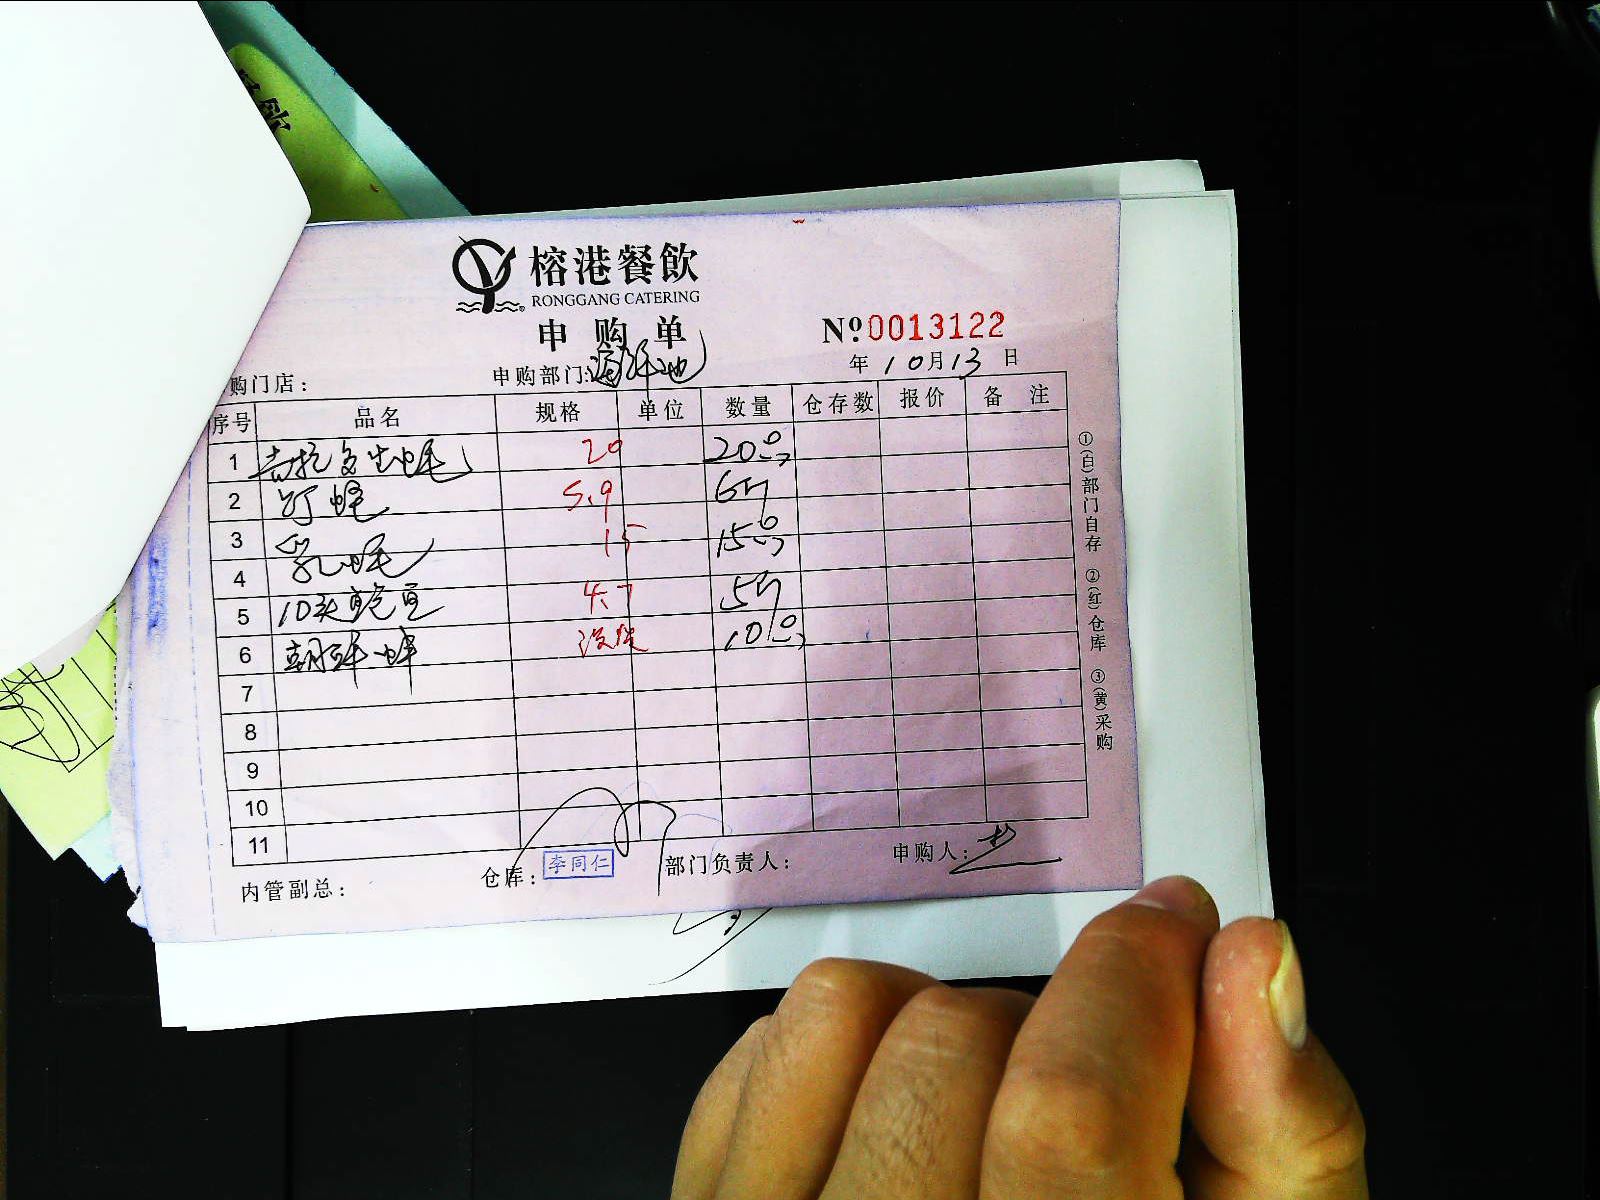 榕港餐飲
RONGGANG CATERING
申购单
№0013122
年10月13日
购门店：
申购部门：海鲜池
序号 品名 规格 单位 数量 仓存数 报价 备注
1 吉拉多生蚝 20 20只
2 5.9 6斤
3 乳蚝 15 15只
4
5 10头鲍鱼 4.7 5斤
6 10只
7
8
9
10
11
①(白)部门自存 ②(红)仓库 ③(黄)采购
内管副总：
仓库：李同仁
部门负责人：
申购人：